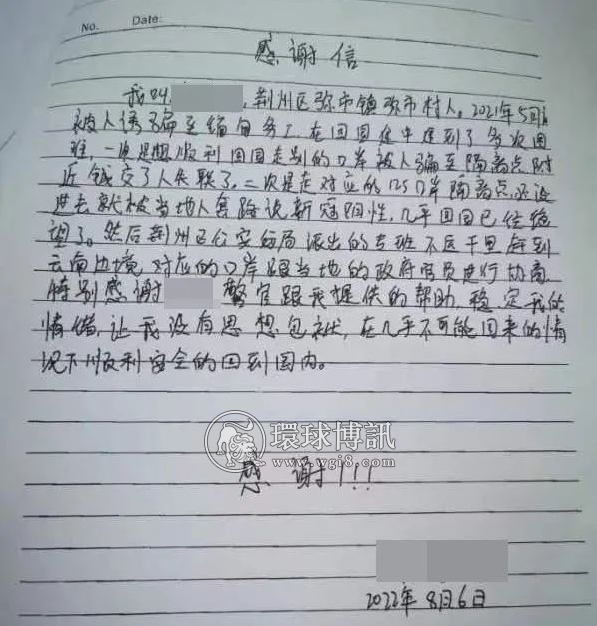 No.
Date:
感谢信
我叫 , 荆州区弥市镇弥市村人。2021年5月
被人诱骗至缅甸务工。在回国途中遇到了多次困
难,一次是想顺利回国走别的口岸被人骗至隔离点附
近钱交了人失联了。二次是走对应的125口岸隔离点,还没
进去就被当地人套路说新冠阳性,几乎回国已经绝
望了。然后荆州区公安分局派出的专班不医千里赶到
云南边境,对应的口岸跟当地的政府官员进行协商
特别感谢 警官跟我提供的帮助,稳定我的
情绪,让我没有思想包袱,在几乎不可能回来的情
况下顺利安全的回到国内。
環球博訊
www.wgi8.com
感谢!!!
2022年8月6日